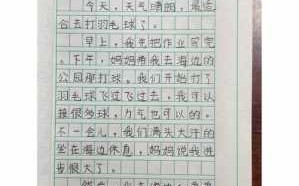 今天，天气晴朗，最适
合去打羽毛球了。
早上，我先把作业写完
。下午，妈妈带我去海边的
公园那打球。我们开始打了
羽毛球飞过飞过去，我可以
接很多球，力气也可以的。
不一会儿，我们满头大汗的
坐在海边休息，妈妈说我进
步很大了。